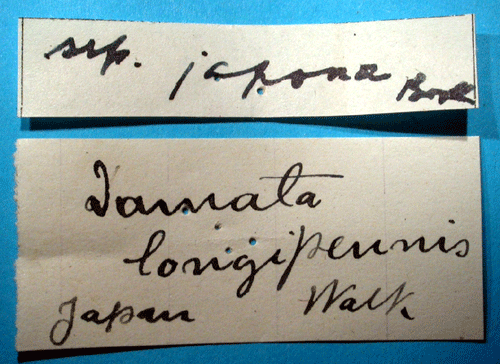 ssp. japona
Damata
longipennis
Japan Walk.